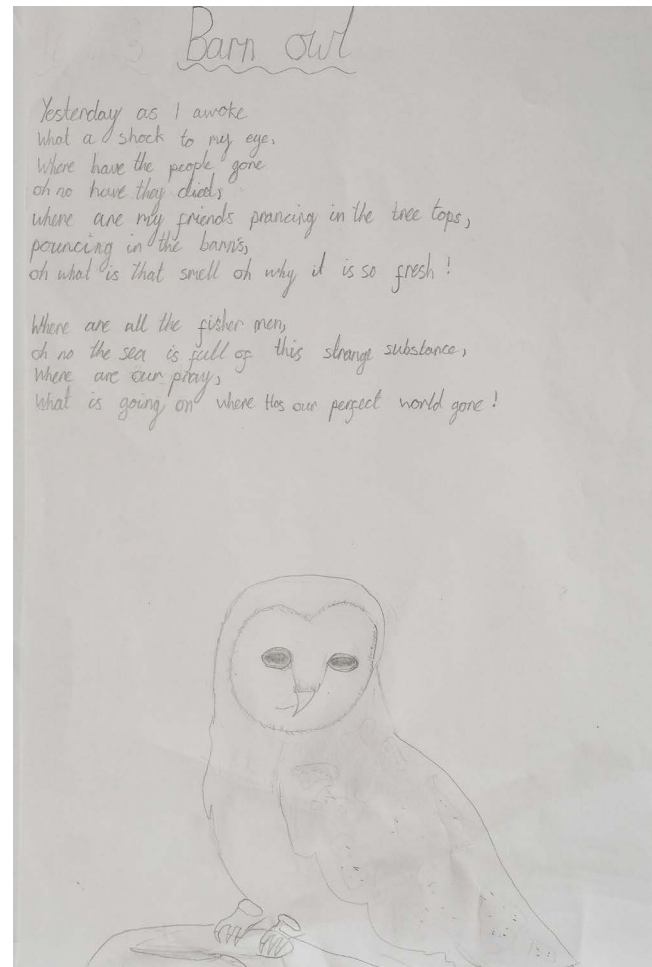 Barn owl
Yesterday as I awoke
What a shock to my eye,
Where have the people gone
oh no have they died,
where are my friends prancing in the tree tops,
pouncing in the barn's,
oh what is that smell oh why it is so fresh!
Where are all the fisher men,
oh no the sea is full of this strange substance,
Where are our pray,
What is going on where Has our perfect world gone!